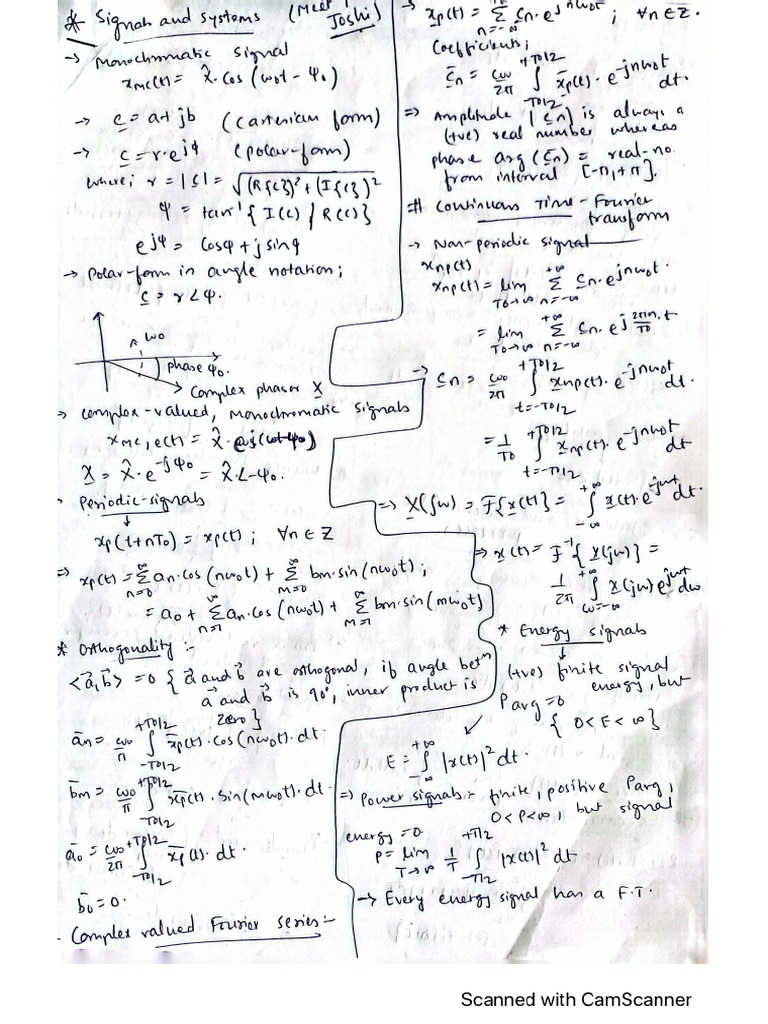 * Signals and systems (Meet Joshi)
→ Monochromatic signal
x_mc(t) = X̂·cos(ω₀t - φ₀)
→ c = a + jb (cartesian form)
→ c = r·e^{jφ} (polar-form)
where; r = |c| = √((R{c})² + (I{c})²
φ = tan⁻¹{I(c) / R(c)}
e^{jφ} = cosφ + j sinφ
→ Polar-form in angle notation;
c = r∠φ.
ω₀
phase φ₀.
Complex phasor X
→ complex-valued, monochromatic signals
x_mc,c(t) = X̂·e^{j(ωt-φ₀)}
X = X̂·e^{-jφ₀} = X̂·∠-φ₀.
Periodic-signals
↓
xp(t+nT₀) = xp(t); ∀n∈Z
⇒ xp(t) = Σ_{n=0}^{∞} an·cos(nω₀t) + Σ_{m=0}^{∞} bm·sin(nω₀t);
= a₀ + Σ_{n=1}^{∞} an·cos(nω₀t) + Σ_{m=1}^{∞} bm·sin(mω₀t)
* Orthogonality :-
<a⃗,b⃗> = 0 { a⃗ and b⃗ are orthogonal, if angle betⁿ
a⃗ and b⃗ is 90°, inner product is
zero }
a̅n = ω₀/π ∫_{-T₀/2}^{+T₀/2} x̅p(t)·cos(nω₀t)·dt
b̅m = ω₀/π ∫_{-T₀/2}^{+T₀/2} x̅p(t)·sin(mω₀t)·dt
a̅₀ = ω₀/2π ∫_{-T₀/2}^{+T₀/2} x̅p(t)·dt.
b̅₀ = 0.
Complex valued Fourier series:-
→ xp(t) = Σ_{n=-∞}^{+∞} cn·e^{jnω₀t}; ∀n∈Z.
Coefficients;
c̅n = ω₀/2π ∫_{-T₀/2}^{+T₀/2} x̅p(t)·e^{-jnω₀t} dt.
⇒ Amplitude |cn| is always a
(+ve) real number whereas
phase arg(cn) = real-no.
from interval [-π,+π].
# Continuous Time - Fourier
transform
→ Non-periodic signal
xnp(t)
xnp(t) = lim_{T₀→∞} Σ_{n=-∞}^{+∞} cn·e^{jnω₀t}.
= lim_{T₀→∞} Σ_{n=-∞}^{+∞} cn·e^{j 2πn/T₀·t}
→ cn = ω₀/2π ∫_{t=-T₀/2}^{+T₀/2} xnp(t)·e^{-jnω₀t} dt.
= 1/T₀ ∫_{t=-T₀/2}^{+T₀/2} xnp(t)·e^{-jnω₀t} dt
⇒ X(jω) = F{x(t)} = ∫_{-∞}^{+∞} x(t)·e^{-jωt} dt.
⇒ x(t) = F⁻¹{X(jω)} =
1/2π ∫_{ω=-∞}^{+∞} X(jω)e^{jωt} dω
* Energy signals
↓
(+ve) finite signal
energy, but
Parg = 0
{ 0<E<∞ }
E = ∫_{-∞}^{+∞} |x(t)|² dt.
⇒ Power signals:- finite, positive Parg,
0<P<∞, but signal
energy = 0
P = lim_{T→∞} 1/T ∫_{-T/2}^{+T/2} |x(t)|² dt
→ Every energy signal has a F.T.
Scanned with CamScanner